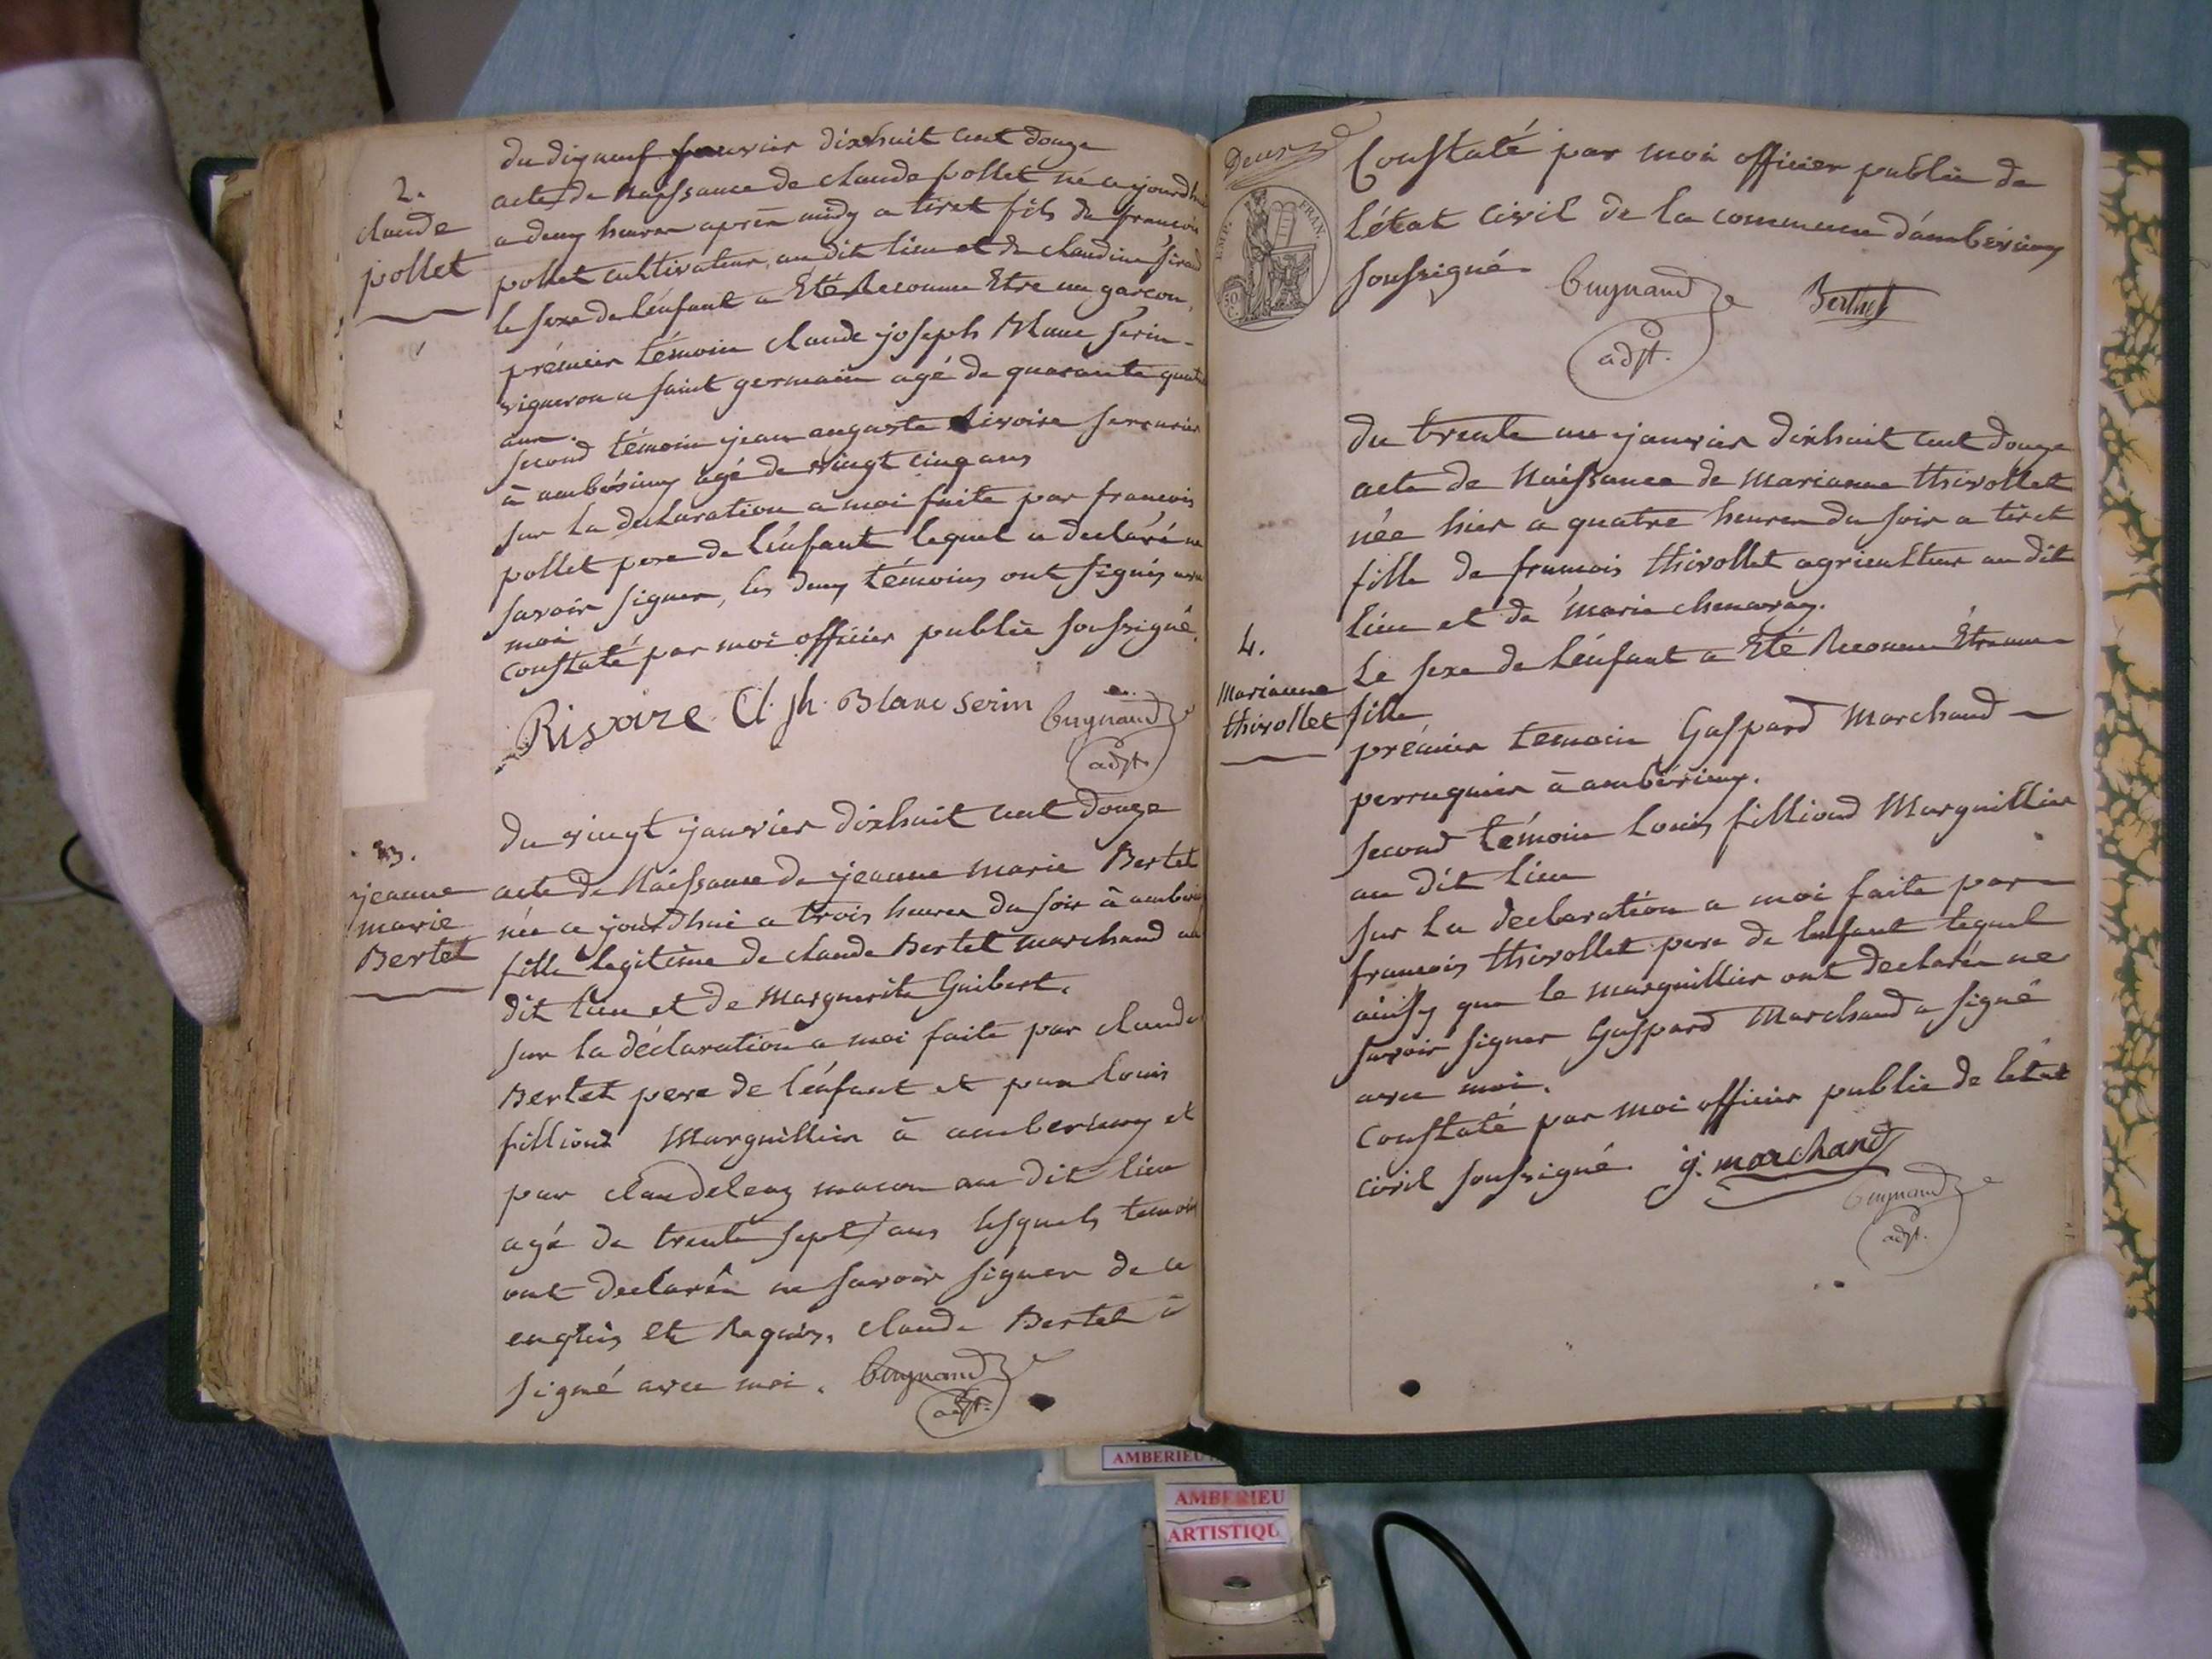 2.
claude
pollet
du dixneuf janvier dixhuit cent douze
acte de Naissance de claude pollet né cejourdhui
a deux heures après midy a tiret fils de francois
pollet cultivateur au dit lieu et de claudine
le sexe de l'énfant a Eté Reconnu Etre un garcon,
prémier témoin claude joseph Blanc serin
vigneron a saint germain agé de quarante quatre
ans.
second témoin jean auguste Rivoire serrurier
à ambérieux agé de vingt cinq ans
sur la declaration a moi faite par francois
pollet pere de l'énfant lequel a declaré ne
savoir signer, les deux témoins ont signés avec
moi
constaté par moi officier public soussigné.
Rivoire Cl. jh. Blanc serin
adjt.
3.
jeanne
marie
Bertet
du vingt janvier dixhuit cent douze
acte de Naissance de jeanne marie Bertet
née cejourdhui a trois heures du soir à
fille legitime de claude Bertet marchand au
dit lieu et de Marguerite Guibert.
sur la déclaration a moi faite par claude
Bertet pere de l'énfant et par Louis
filliond Marguillier à amberieux et
par claude macon au dit lieu
agé de trente sept ans lesquels temoins
ont declarés ne savoir signer de ce
enquis et Requis, claude Bertet a
signé avec moi.
adjt.
Deux
EMP. FRAN.
50 C.
Constaté par moi officier public de
l'état civil de la commune d'ambérieux
soussigné
Bertet
adjt.
4.
Marianne
thivollet
du trente un janvier dixhuit cent douze
acte de Naissance de Marianne thivollet
née hier a quatre heures du soir a tiret
fille de francois thivollet agriculteur au dit
lieu et de marie chenavay.
Le sexe de l'énfant a Eté Reconnu Etre une
fille
prémier temoin Gaspard Marchand
perruquier à ambérieux.
second témoin Louis filliond Marguillier
au dit lieu
sur la declaration a moi faite par
francois thivollet pere de lenfant lequel
ainsy que le marguillier ont declarés ne
savoir signer Gaspard Marchand a signé
avec moi.
Constaté par moi officier public de létat
civil soussigné. g. marchand
adjt.
AMBERIEU
AMBERIEU
ARTISTIQU